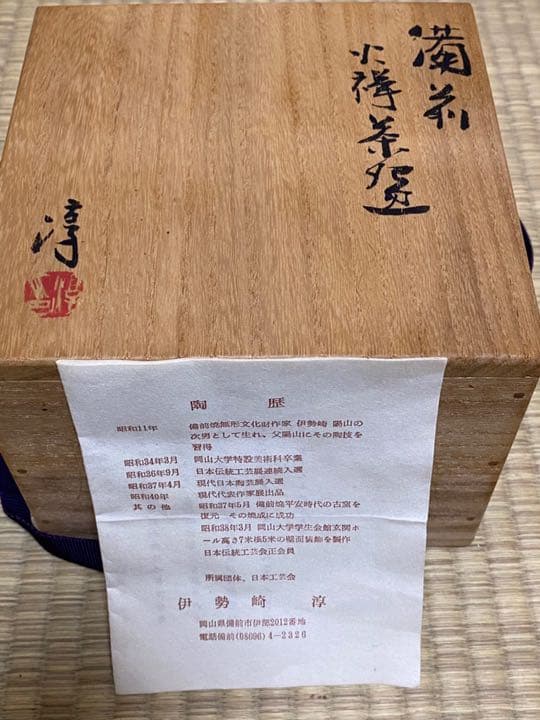 備前
火襷茶碗
淳
陶歴
昭和11年 備前焼無形文化財作家 伊勢崎 陽山の
次男として生れ、父陽山にその陶技を
習得
昭和34年3月 岡山大学特設美術科卒業
昭和36年9月 日本伝統工芸展連続入選
昭和37年4月 現代日本陶芸展入選
昭和40年 現代代表作家展出品
その他 昭和37年5月 備前焼平安時代の古窯を
復元 その焼成に成功
昭和38年3月 岡山大学学生会館玄関ホ
ール高さ7米横5米の壁面装飾を製作
日本伝統工芸会正会員
所属団体、日本工芸会
伊勢崎 淳
岡山県備前市伊部2012番地
電話備前(08696)4-2326